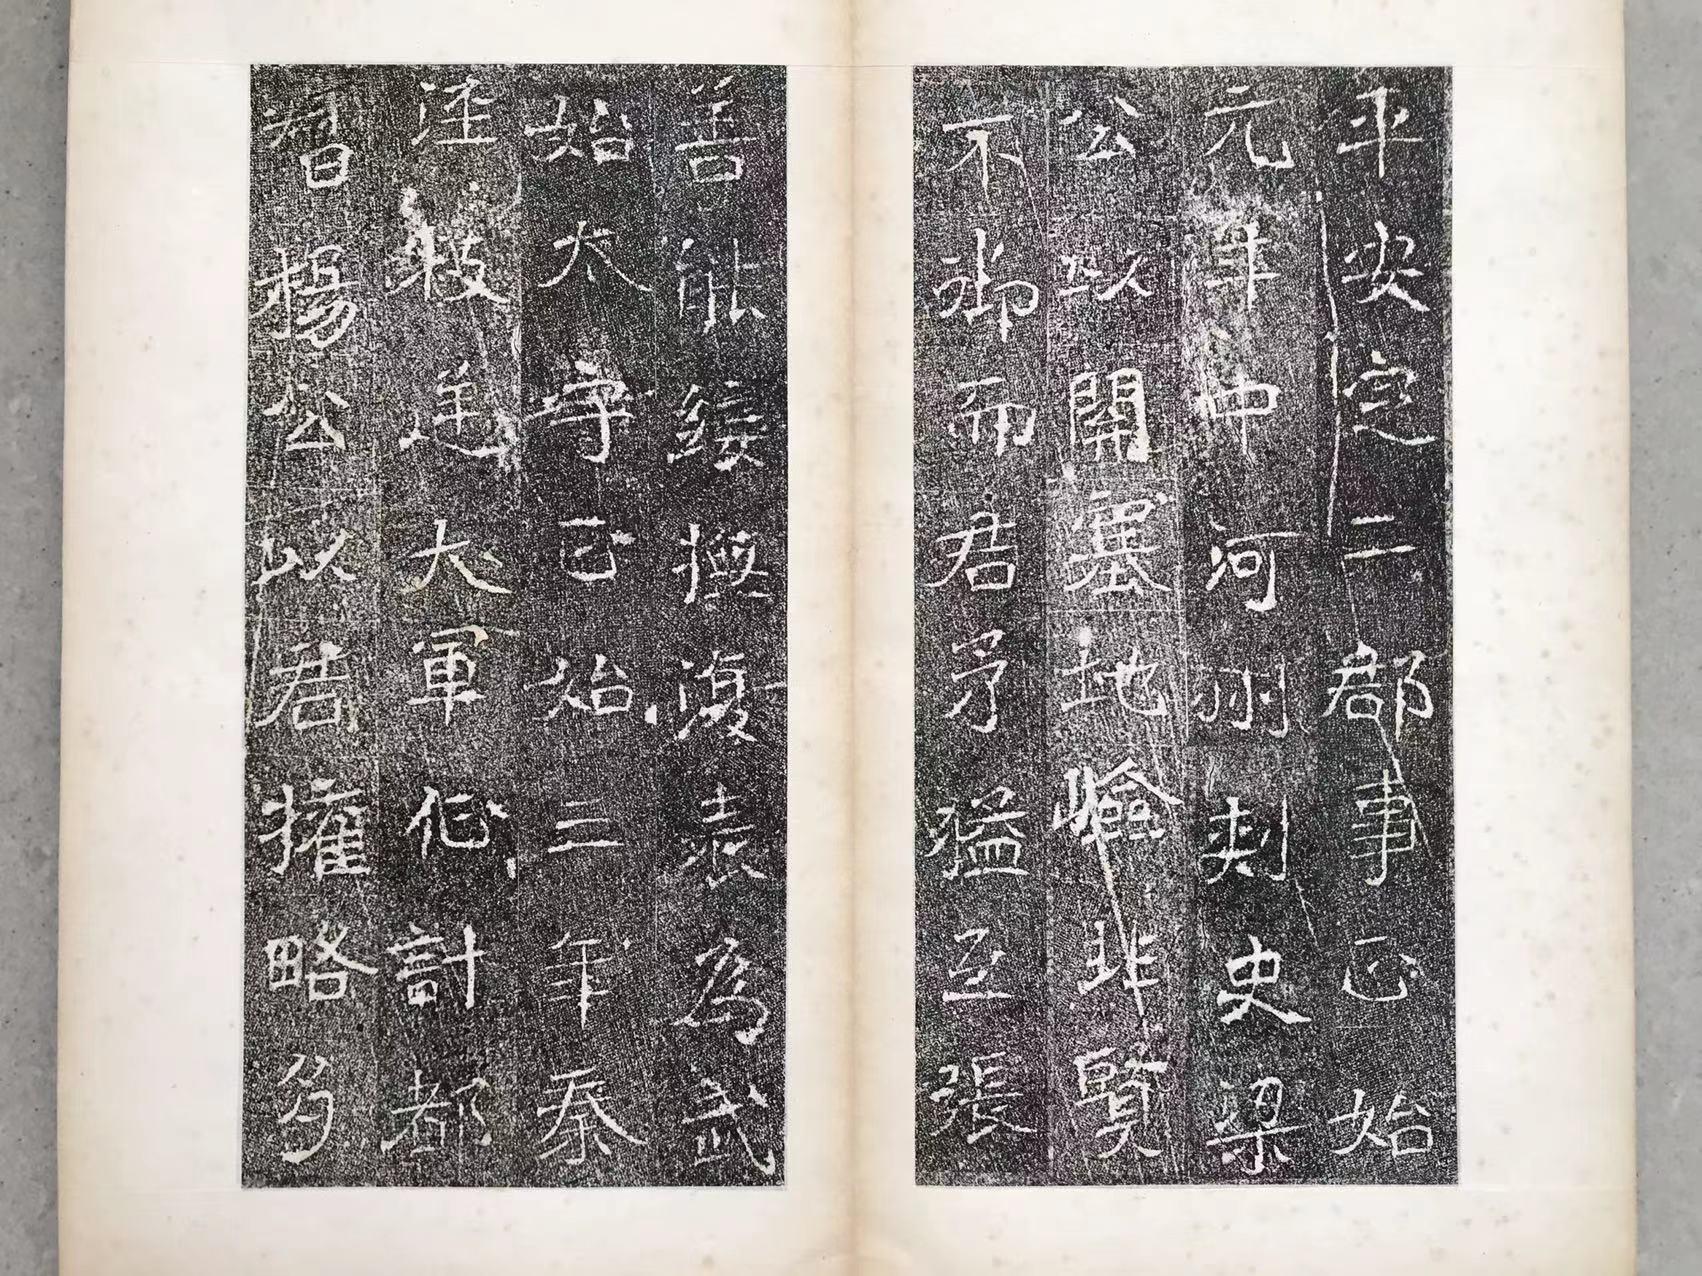 平安定二郡事正始
元年中河州刺史梁
公以開塞地嶮非賢
不御而君矛猛互張
善能綏撫復表為武
始太守正始三年秦
涇叛逆大軍征計都
督楊公以君權略多